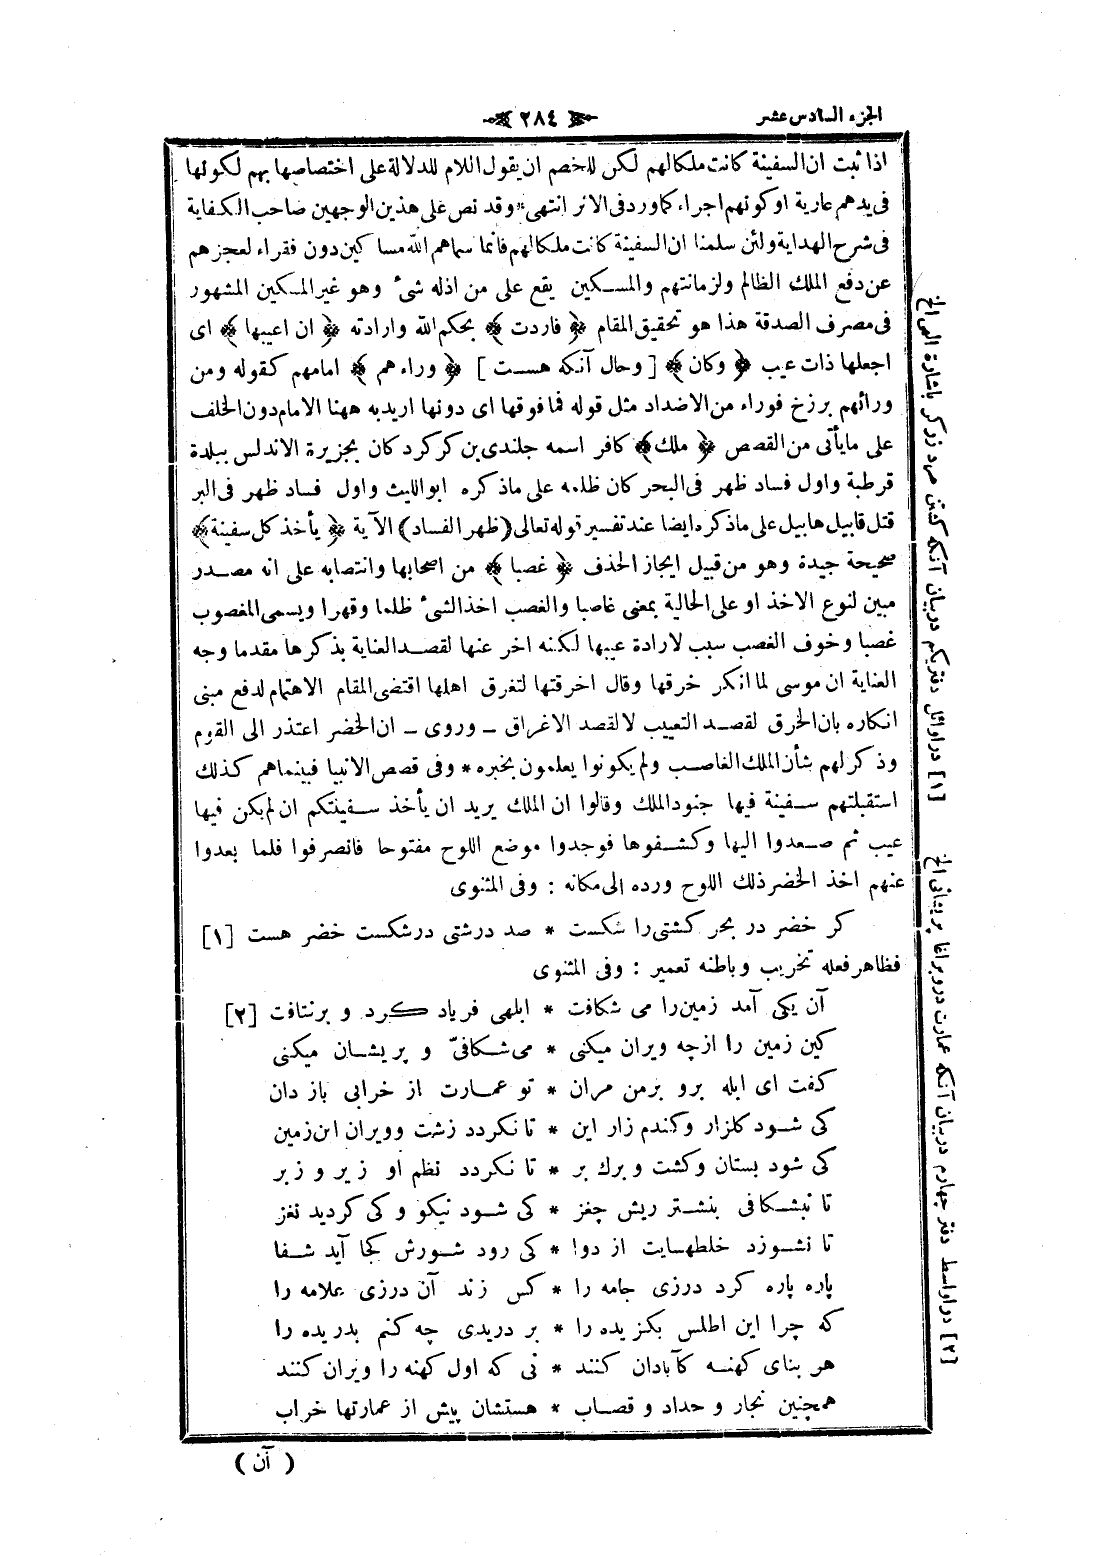 الجزء السادس عشر
﴿ ٢٨٤ ﴾
اذا ثبت ان السفينة كانت ملكا لهم لكن للخصم ان يقول اللام للدلالة على اختصاصها بهم لكونها
فى يدهم عارية او كونهم اجراء كما ورد فى الاثر انتهى * وقد نص على هذين الوجهين صاحب الكفاية
فى شرح الهداية ولئن سلمنا ان السفينة كانت ملكا لهم فانما سماهم الله مساكين دون فقراء لعجزهم
عن دفع الملك الظالم ولزمانتهم والمسكين يقع على من اذله شئ وهو غير المسكين المشهور
فى مصرف الصدقة هذا هو تحقيق المقام ﴿ فاردت ﴾ بحكم الله وارادته ﴿ ان اعيبها ﴾ اى
اجعلها ذات عيب ﴿ وكان ﴾ [ وحال آنكه هست ] ﴿ وراءهم ﴾ امامهم كقوله ومن
ورائهم برزخ فوراء من الاضداد مثل قوله فما فوقها اى دونها اريد به ههنا الامام دون الخلف
على ما يأتى من القصص ﴿ ملك ﴾ كافر اسمه جلندى بن كركرد كان بجزيرة الاندلس ببلدة
قرطبة واول فساد ظهر فى البحر كان ظلمه على ما ذكره ابو الليث واول فساد ظهر فى البر
قتل قابيل هابيل على ما ذكره ايضا عند تفسير قوله تعالى ( ظهر الفساد ) الآية ﴿ يأخذ كل سفينة ﴾
صحيحة جيدة وهو من قبيل ايجاز الحذف ﴿ غصبا ﴾ من اصحابها وانتصابه على انه مصدر
مبين لنوع الاخذ او على الحالية بمعنى غاصبا والغصب اخذ الشئ ظلما وقهرا ويسمى المغصوب
غصبا وخوف الغصب سبب لارادة عيبها لكنه اخر عنها لقصد العناية بذكرها مقدما وجه
العناية ان موسى لما انكر خرقها وقال اخرقتها لتغرق اهلها اقتضى المقام الاهتمام لدفع مبنى
انكاره بان الخرق لقصد التعييب لا لقصد الاغراق ـ وروى ـ ان الخضر اعتذر الى القوم
وذكر لهم شأن الملك الغاصب ولم يكونوا يعلمون بخبره * وفى قصص الانبيا فبينماهم كذلك
استقبلتهم سفينة فيها جنود الملك وقالوا ان الملك يريد ان يأخذ سفينتكم ان لم يكن فيها
عيب ثم صعدوا اليها وكشفوها فوجدوا موضع اللوح مفتوحا فانصرفوا فلما بعدوا
عنهم اخذ الخضر ذلك اللوح ورده الى مكانه : وفى المثنوى
كر خضر در بحر كشتى را شكست * صد درشتى در شكست خضر هست [١]
فظاهر فعله تخريب وباطنه تعمير : وفى المثنوى
آن يكى آمد زمين را مى شكافت * ابلهى فرياد كرد و برنتافت [٢]
كين زمين را از چه ويران ميكنى * مى شكافى و پريشان ميكنى
كفت اى ابله برو برمن مران * تو عمارت از خرابى باز دان
كى شود كلزار وكندم زار اين * تا نكردد زشت وويران اين زمين
كى شود بستان وكشت و برك بر * تا نكردد نظم او زير و زبر
تا نبشكافى بنشتر ريش چغز * كى شود نيكو و كى كرديد نغز
تا نشوزد خلطهايت از دوا * كى رود شورش كجا آيد شفا
پاره پاره كرد درزى جامه را * كس زند آن درزى علامه را
كه چرا اين اطلس بكزيده را * بر دريدى چه كنم بدريده را
هر بناى كهنه كآبادان كنند * نى كه اول كهنه را ويران كنند
همچنين نجار و حداد و قصاب * هستشان پيش از عمارتها خراب
( آن )
[١] در اوائل دفتر يكم در بيان آنكه كشتن مرد زركر باشارة الهى الخ
[٢] در اواسط دفتر چهارم در بيان آنكه عمارت در ويرانى است